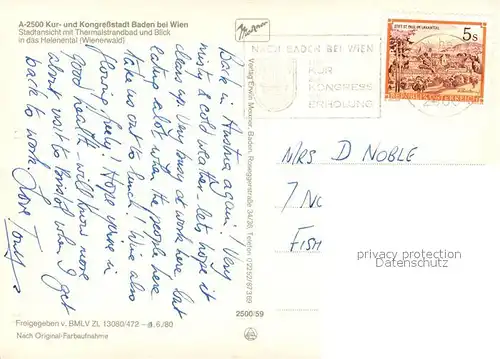 A-2500 Kur- und Kongreßstadt Baden bei Wien
Stadtansicht mit Thermalstrandbad und Blick
in das Helenental (Wienerwald)
Back in Austria again! Very
misty & cold weather - lets hope it
clears up. Very busy at work here but
eating alot when the people here
take us out to lunch! Wine also
flowing freely! Hope you're in
good health - will know more
about visit to Bristol when I get
back to work. Love Tony
Freigegeben v. BMLV ZL 13080/472 – 1.6/80
Nach Original-Farbaufnahme
2500/59
Verlag Erwin Meixner, Baden, Roseggerstraße 34/36, Telefon 02252/87369
Meixner
NACH BADEN BEI WIEN
KUR
KONGRESS
ERHOLUNG
STIFT ST. PAUL IM LAVANTTAL
5 S
REPUBLIK ÖSTERREICH
MRS D NOBLE
7 NO
FISH
privacy protection
oldthing.de